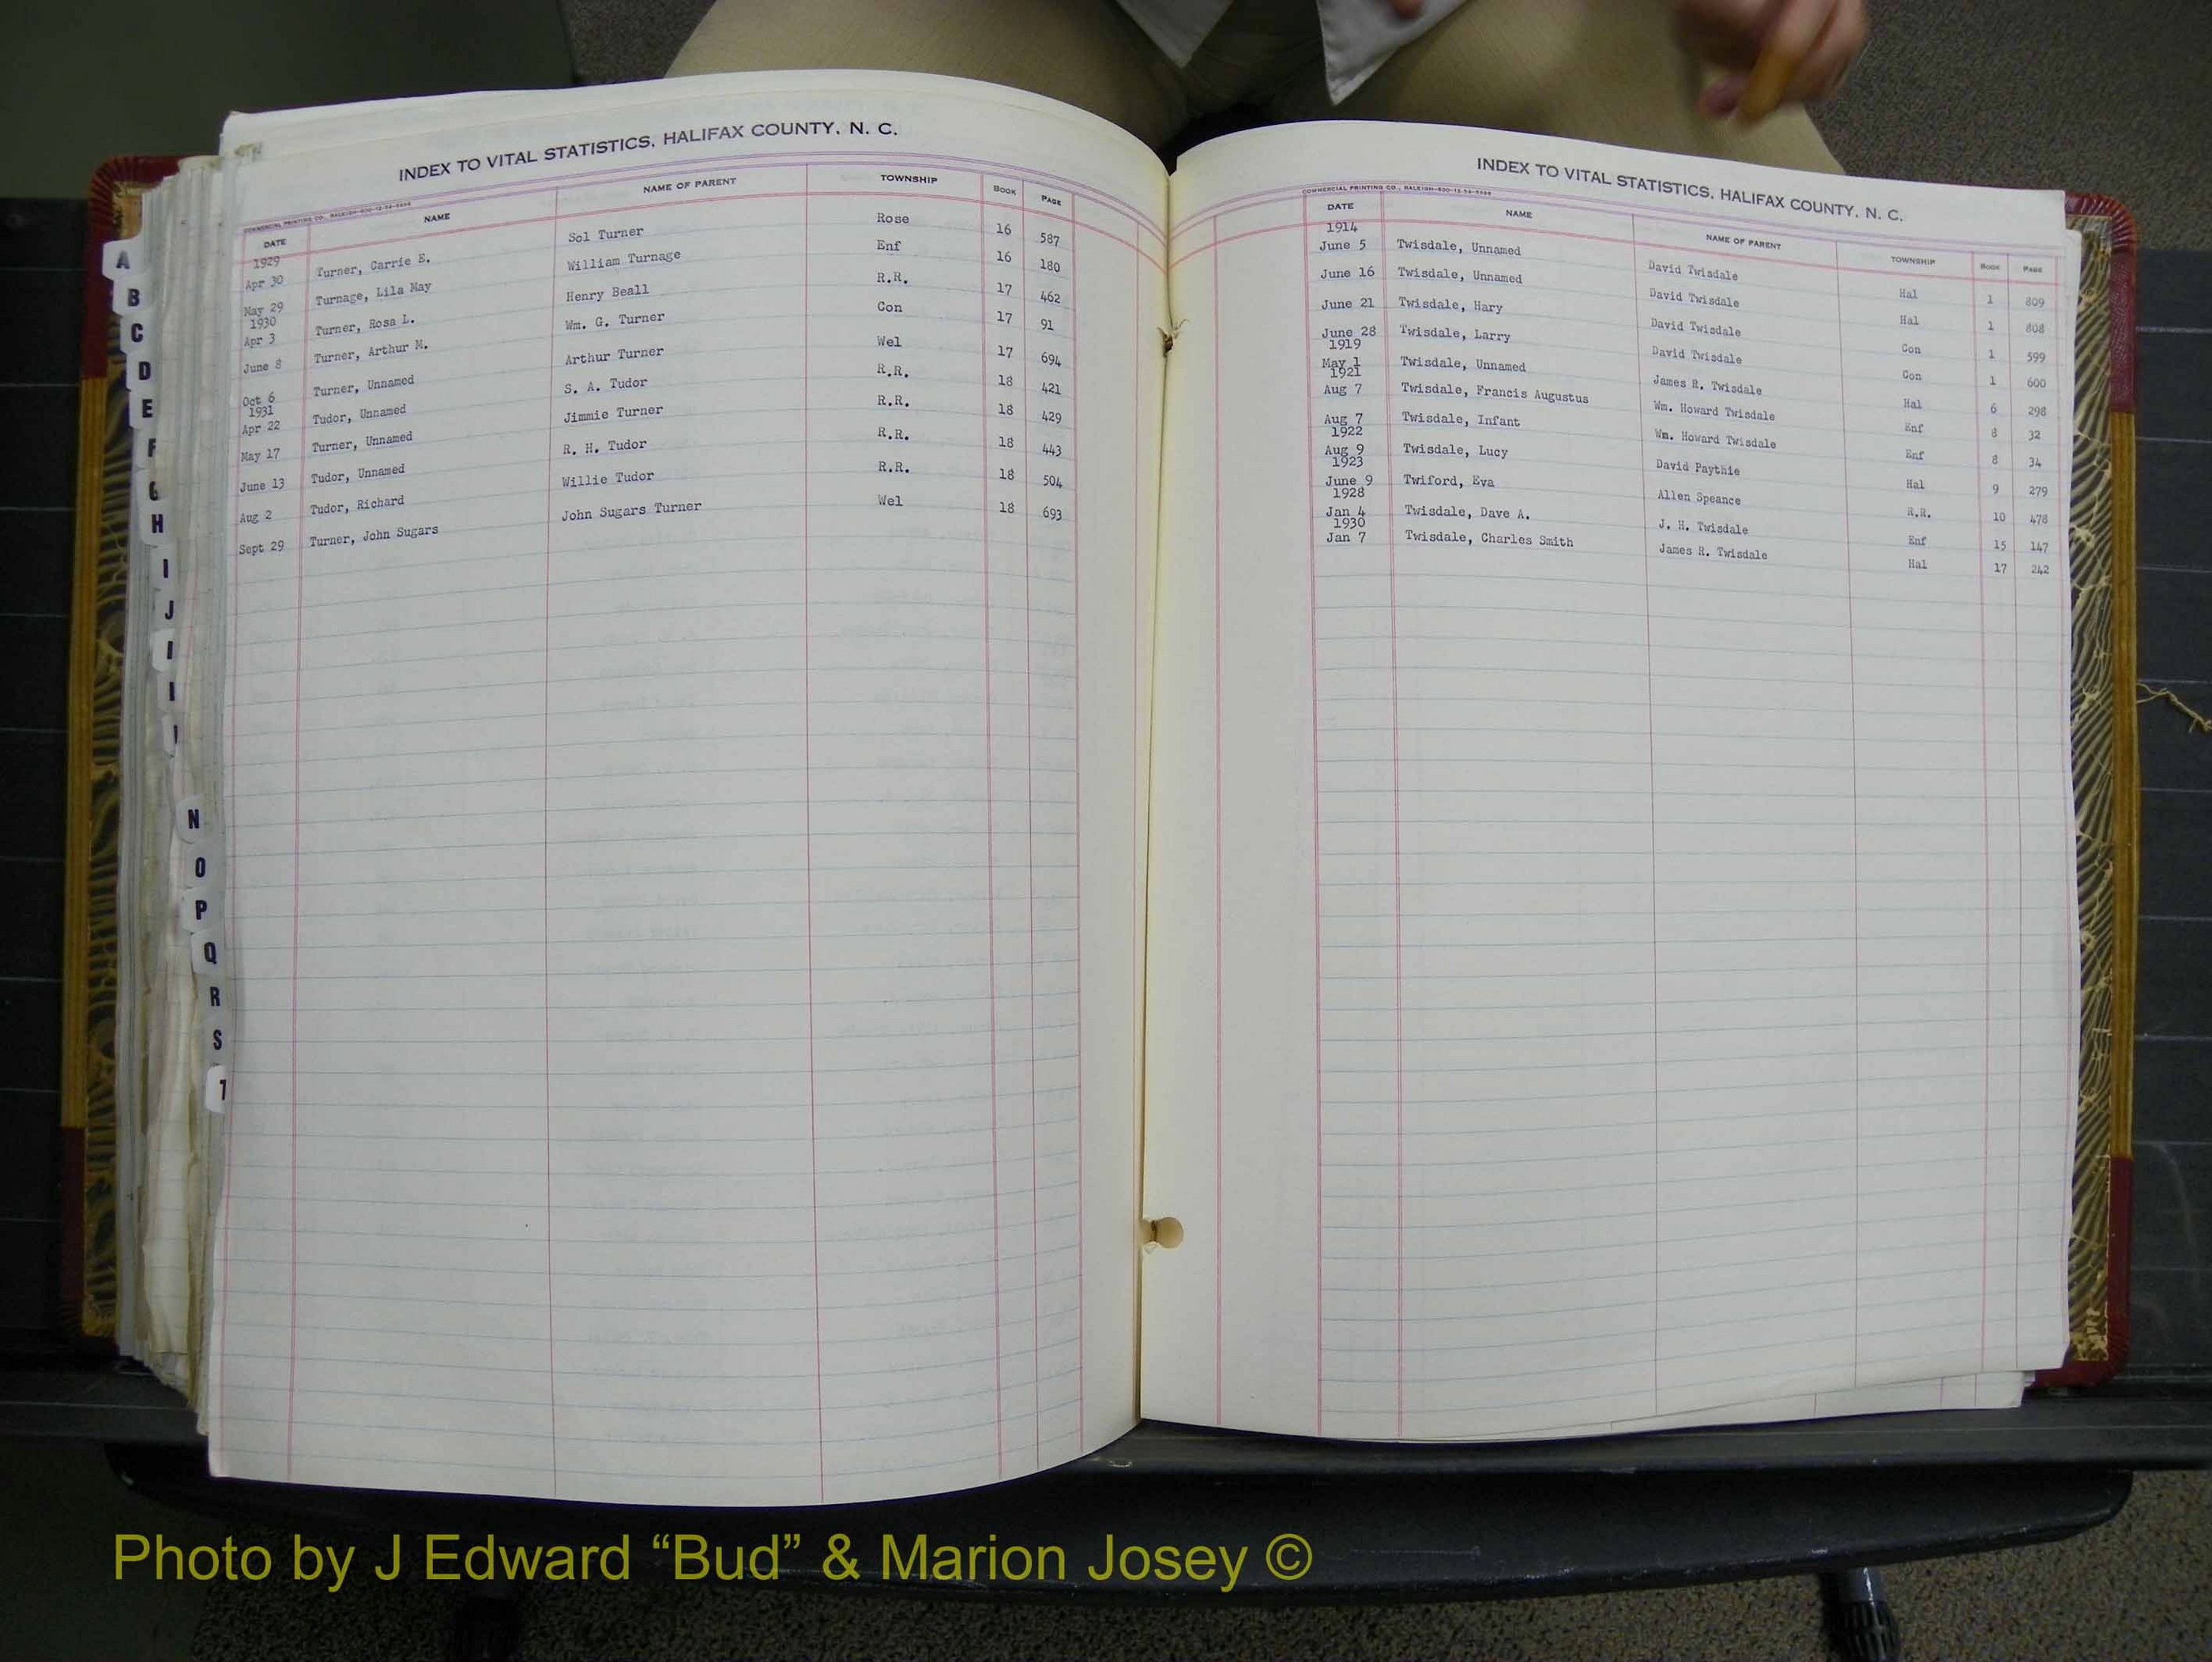 INDEX TO VITAL STATISTICS, HALIFAX COUNTY, N. C.
DATE NAME NAME OF PARENT TOWNSHIP BOOK PAGE
1929
Apr 30 Turner, Carrie E. Sol Turner Rose 16 587
May 29 Turnage, Lila May William Turnage Enf 16 180
1930
Apr 3 Turner, Rosa L. Henry Beall R.R. 17 462
June 8 Turner, Arthur M. Wm. G. Turner Con 17 91
Oct 6 Turner, Unnamed Arthur Turner Wel 17 694
1931
Apr 22 Tudor, Unnamed S. A. Tudor R.R. 18 421
May 17 Turner, Unnamed Jimmie Turner R.R. 18 429
June 13 Tudor, Unnamed R. H. Tudor R.R. 18 443
Aug 2 Tudor, Richard Willie Tudor R.R. 18 504
Sept 29 Turner, John Sugars John Sugars Turner Wel 18 693
A
B
C
D
E
F
G
H
I
J
N
O
P
Q
R
S
T
INDEX TO VITAL STATISTICS, HALIFAX COUNTY, N. C.
DATE NAME NAME OF PARENT TOWNSHIP BOOK PAGE
1914
June 5 Twisdale, Unnamed David Twisdale Hal 1 809
June 16 Twisdale, Unnamed David Twisdale Hal 1 808
June 21 Twisdale, Hary David Twisdale Con 1 599
June 28 Twisdale, Larry David Twisdale Con 1 600
1919
May 1 Twisdale, Unnamed James R. Twisdale Hal 6 298
1921
Aug 7 Twisdale, Francis Augustus Wm. Howard Twisdale Enf 8 32
Aug 7 Twisdale, Infant Wm. Howard Twisdale Enf 8 34
1922
Aug 9 Twisdale, Lucy David Paythie Hal 9 279
1923
June 9 Twiford, Eva Allen Speance R.R. 10 478
1928
Jan 4 Twisdale, Dave A. J. H. Twisdale Enf 15 147
1930
Jan 7 Twisdale, Charles Smith James R. Twisdale Hal 17 242
Photo by J Edward “Bud” & Marion Josey ©